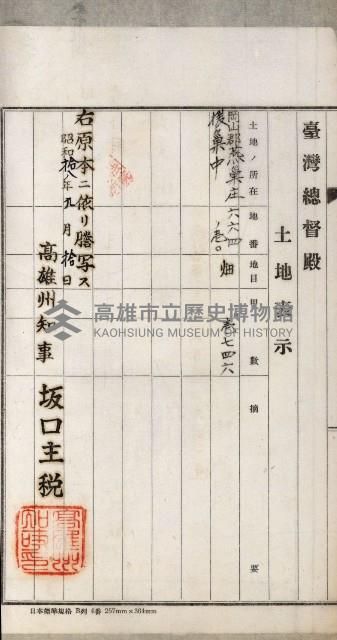 臺灣總督殿
土地表示
土地ノ所在 地番 地目 甲數 摘要
岡山郡燕巢庄 六六四ノ壱〇 畑 壱七四六
援巢中
右原本ニ依リ謄写ス
昭和拾八年九月拾日
高雄州知事 坂口主税
高雄市立歷史博物館
KAOHSIUNG MUSEUM OF HISTORY
日本標準規格 B列 4番 257mm×364mm